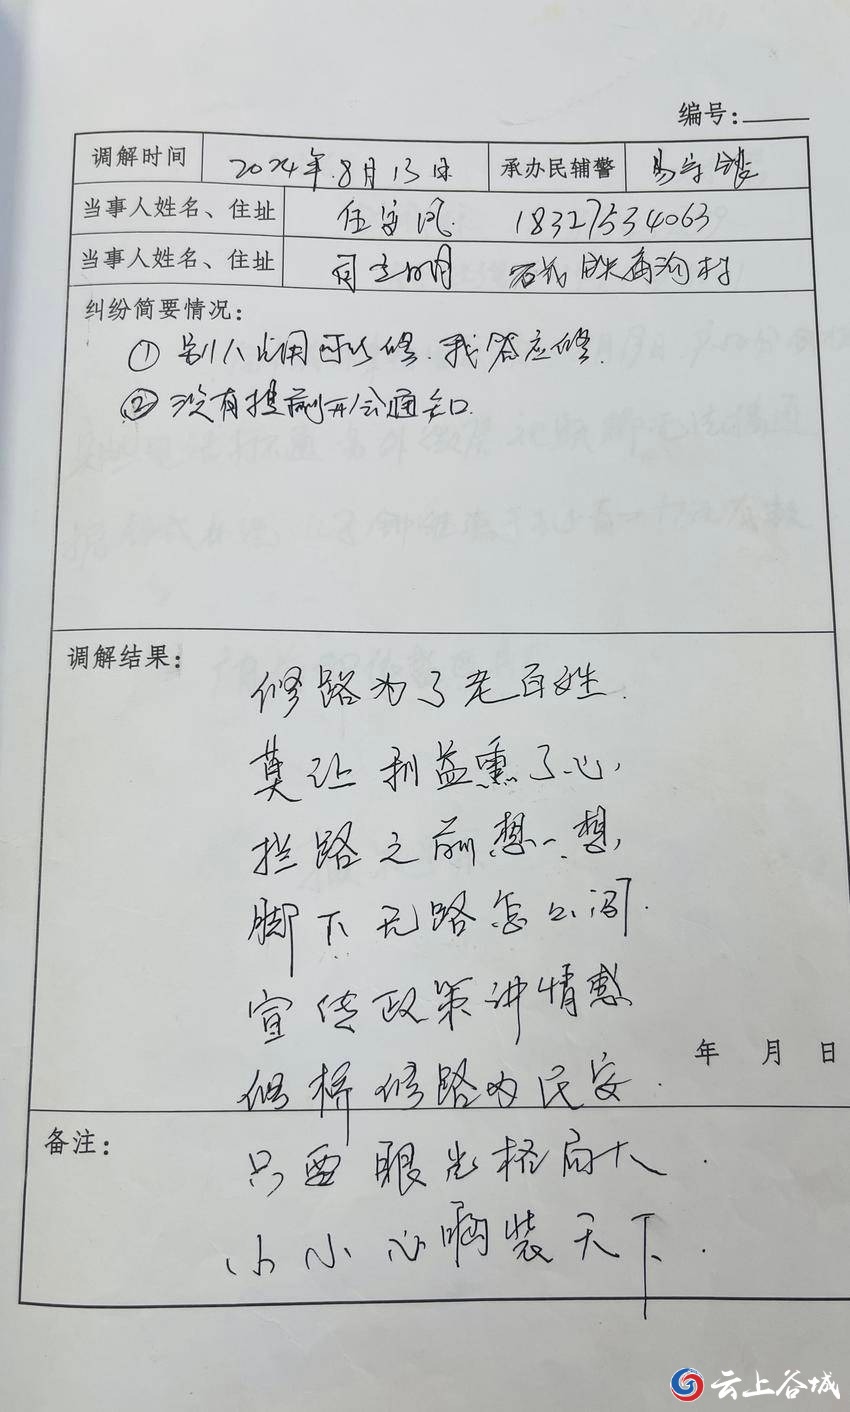 编号：
调解时间 2024年8月13日 承办民辅警 易守
当事人姓名、住址 任守风 18327534063
当事人姓名、住址 司立明 石 沟村
纠纷简要情况：
① 别人 用可以修.我答应修.
② 没有提前开会通知.
调解结果：
修路为了老百姓.
莫让利益熏了心,
拦路之前想一想,
脚下无路怎么闯.
宣传政策讲情感
年 月 日
修桥修路为民安.
备注：
只要眼光格局大.
小小心胸装天下.
云上谷城